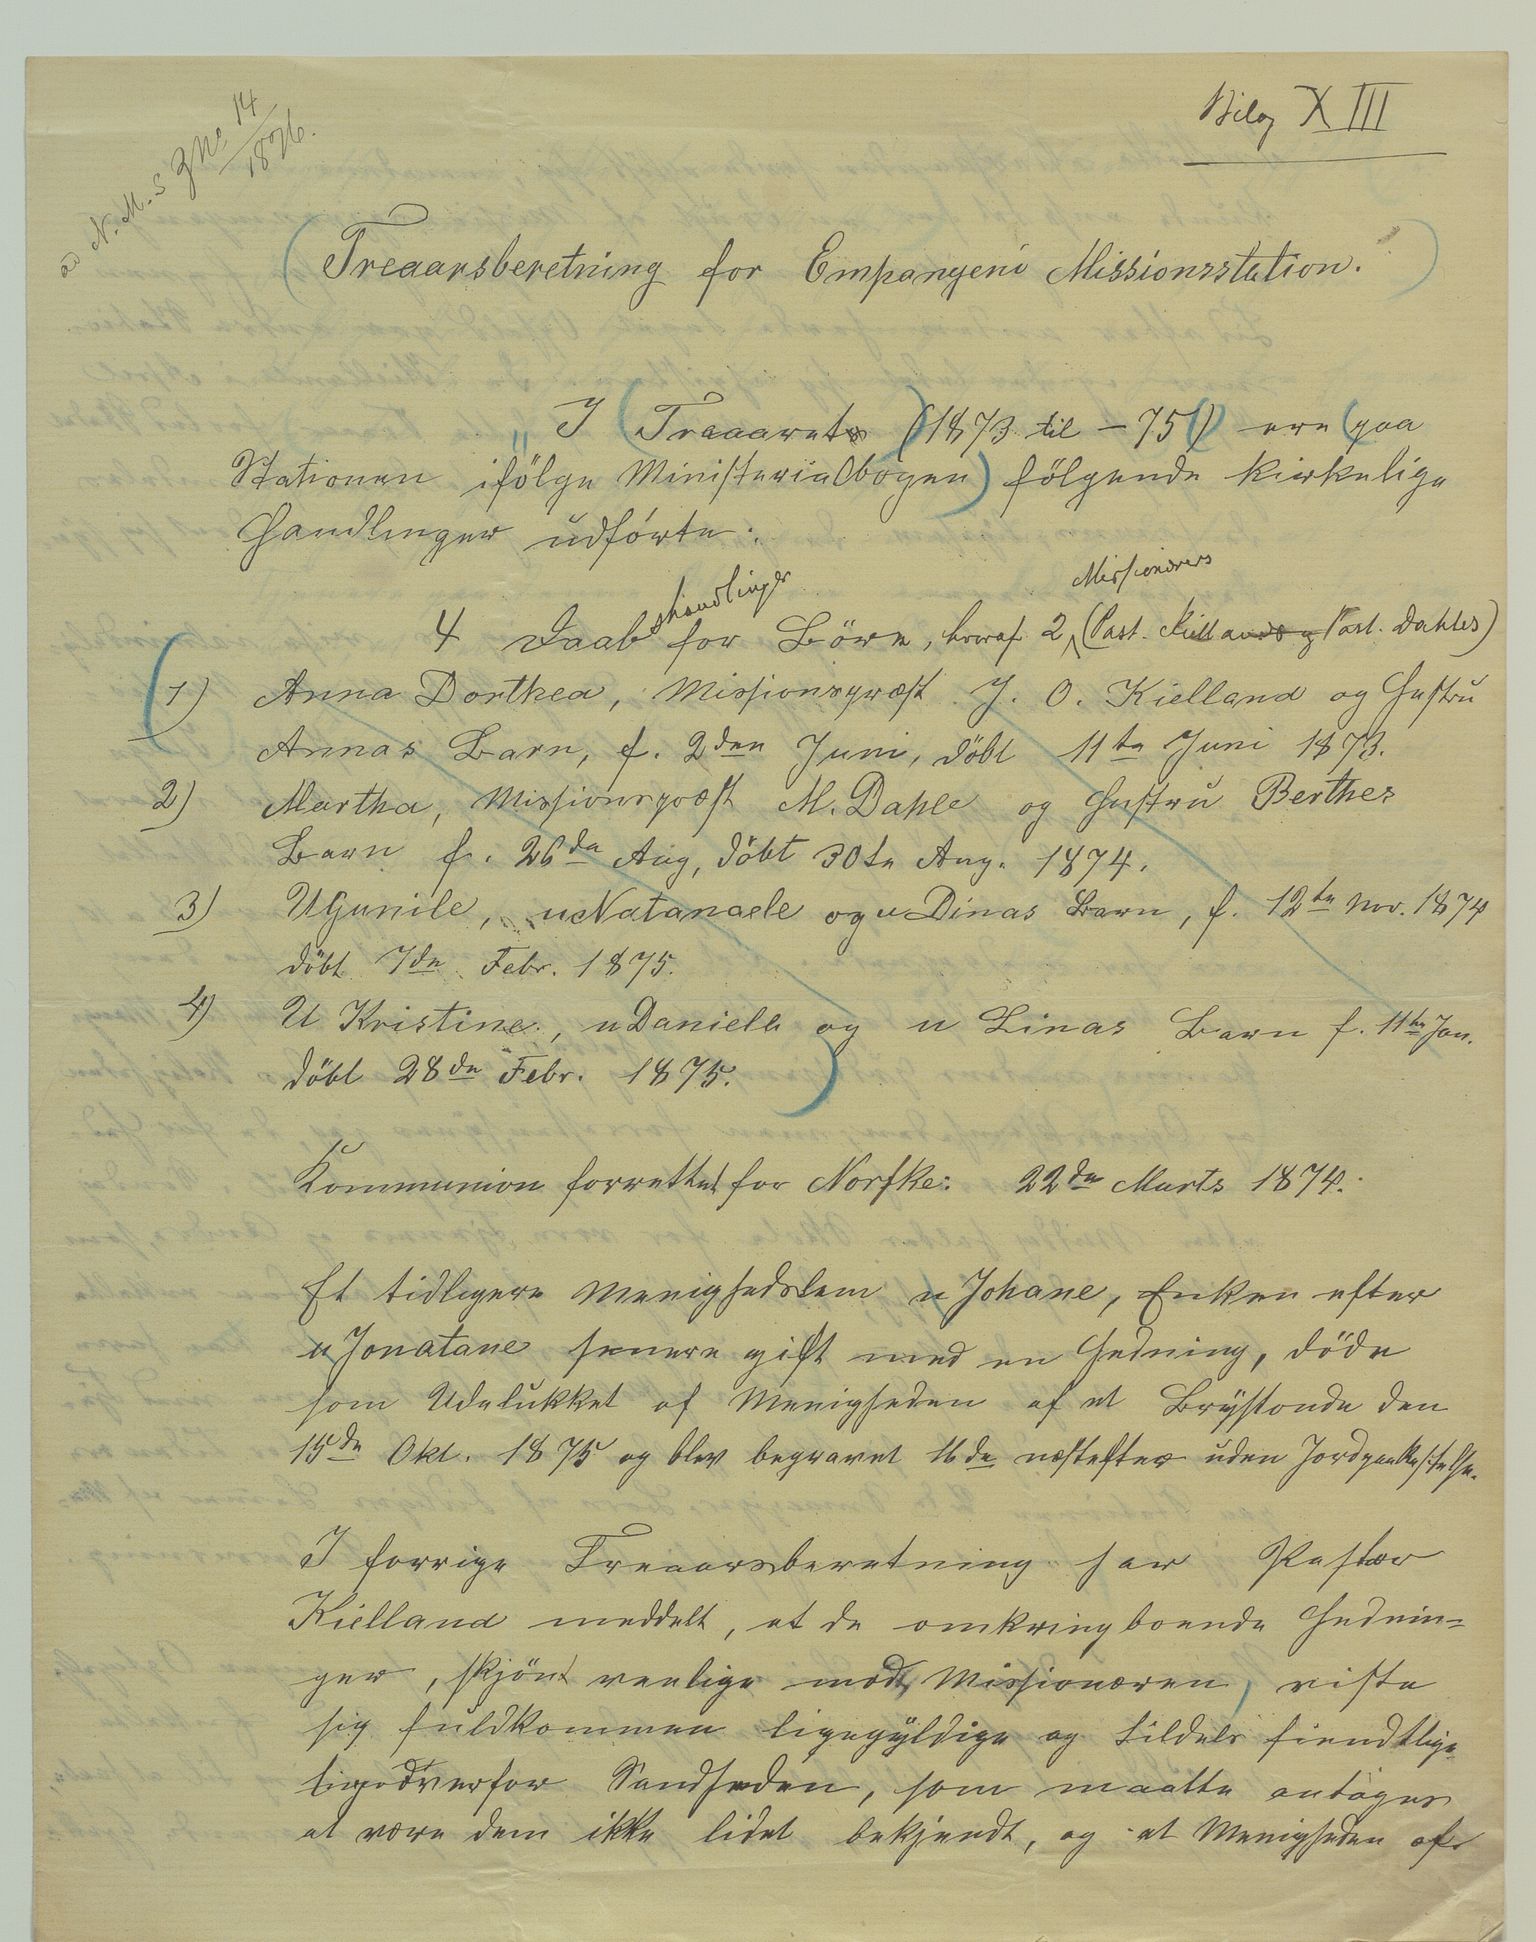 ad N. M. S ZNo. 14/1876.
Bilag XIII
(Treaarsberetning for Empangeni Missionsstation.)
"I (Treaaret) (1873 til – 75) ere (paa
Stationen ifölge Ministerialbogen) fölgende kirkelige
Handlinger udförte:
Missionærers
4 Daabshandlinger for Börn, hvoraf 2 (Past. Kiellands og Past. Dahles)
1) Anna Dorthea, Missionspræst J. O. Kielland og Hustru
Annas Barn, f. 2den Juni, döbt 11te Juni 1873.
2) Martha, Missionspræst M. Dahle og Hustru Berthes
Barn f. 26de Aug, döbt 30te Aug. 1874.
3) UGunile, uNatanaele og uDinas Barn, f. 12te Nov. 1874
döbt 7de Febr. 1875.
4) U Kristine, uDaniele og u Linas Barn f. 11te Jan.
döbt 28de Febr. 1875.
Kommunion forrettet for Norske: 22de Marts 1874.
Et tidligere Menighedslem uJohane, Enken efter
uJonatane senere gift med en Hedning, döde
som Udelukket af Menigheden af et Brÿstonde den
15de Okt. 1875 og blev begravet 16de næstefter uden Jordpaakastelse.
I forrige Treaarsberetning har Pastor
Kielland meddelt, at de omkringboende Hednin-
ger, skjönt venlige mod Missionæren, viste
sig fuldkommen ligegÿldige og tildels fiendtlige
ligeoverfor Sandheden, som maatte antages
at være dem ikke lidet bekjendt, og at Menigheden af